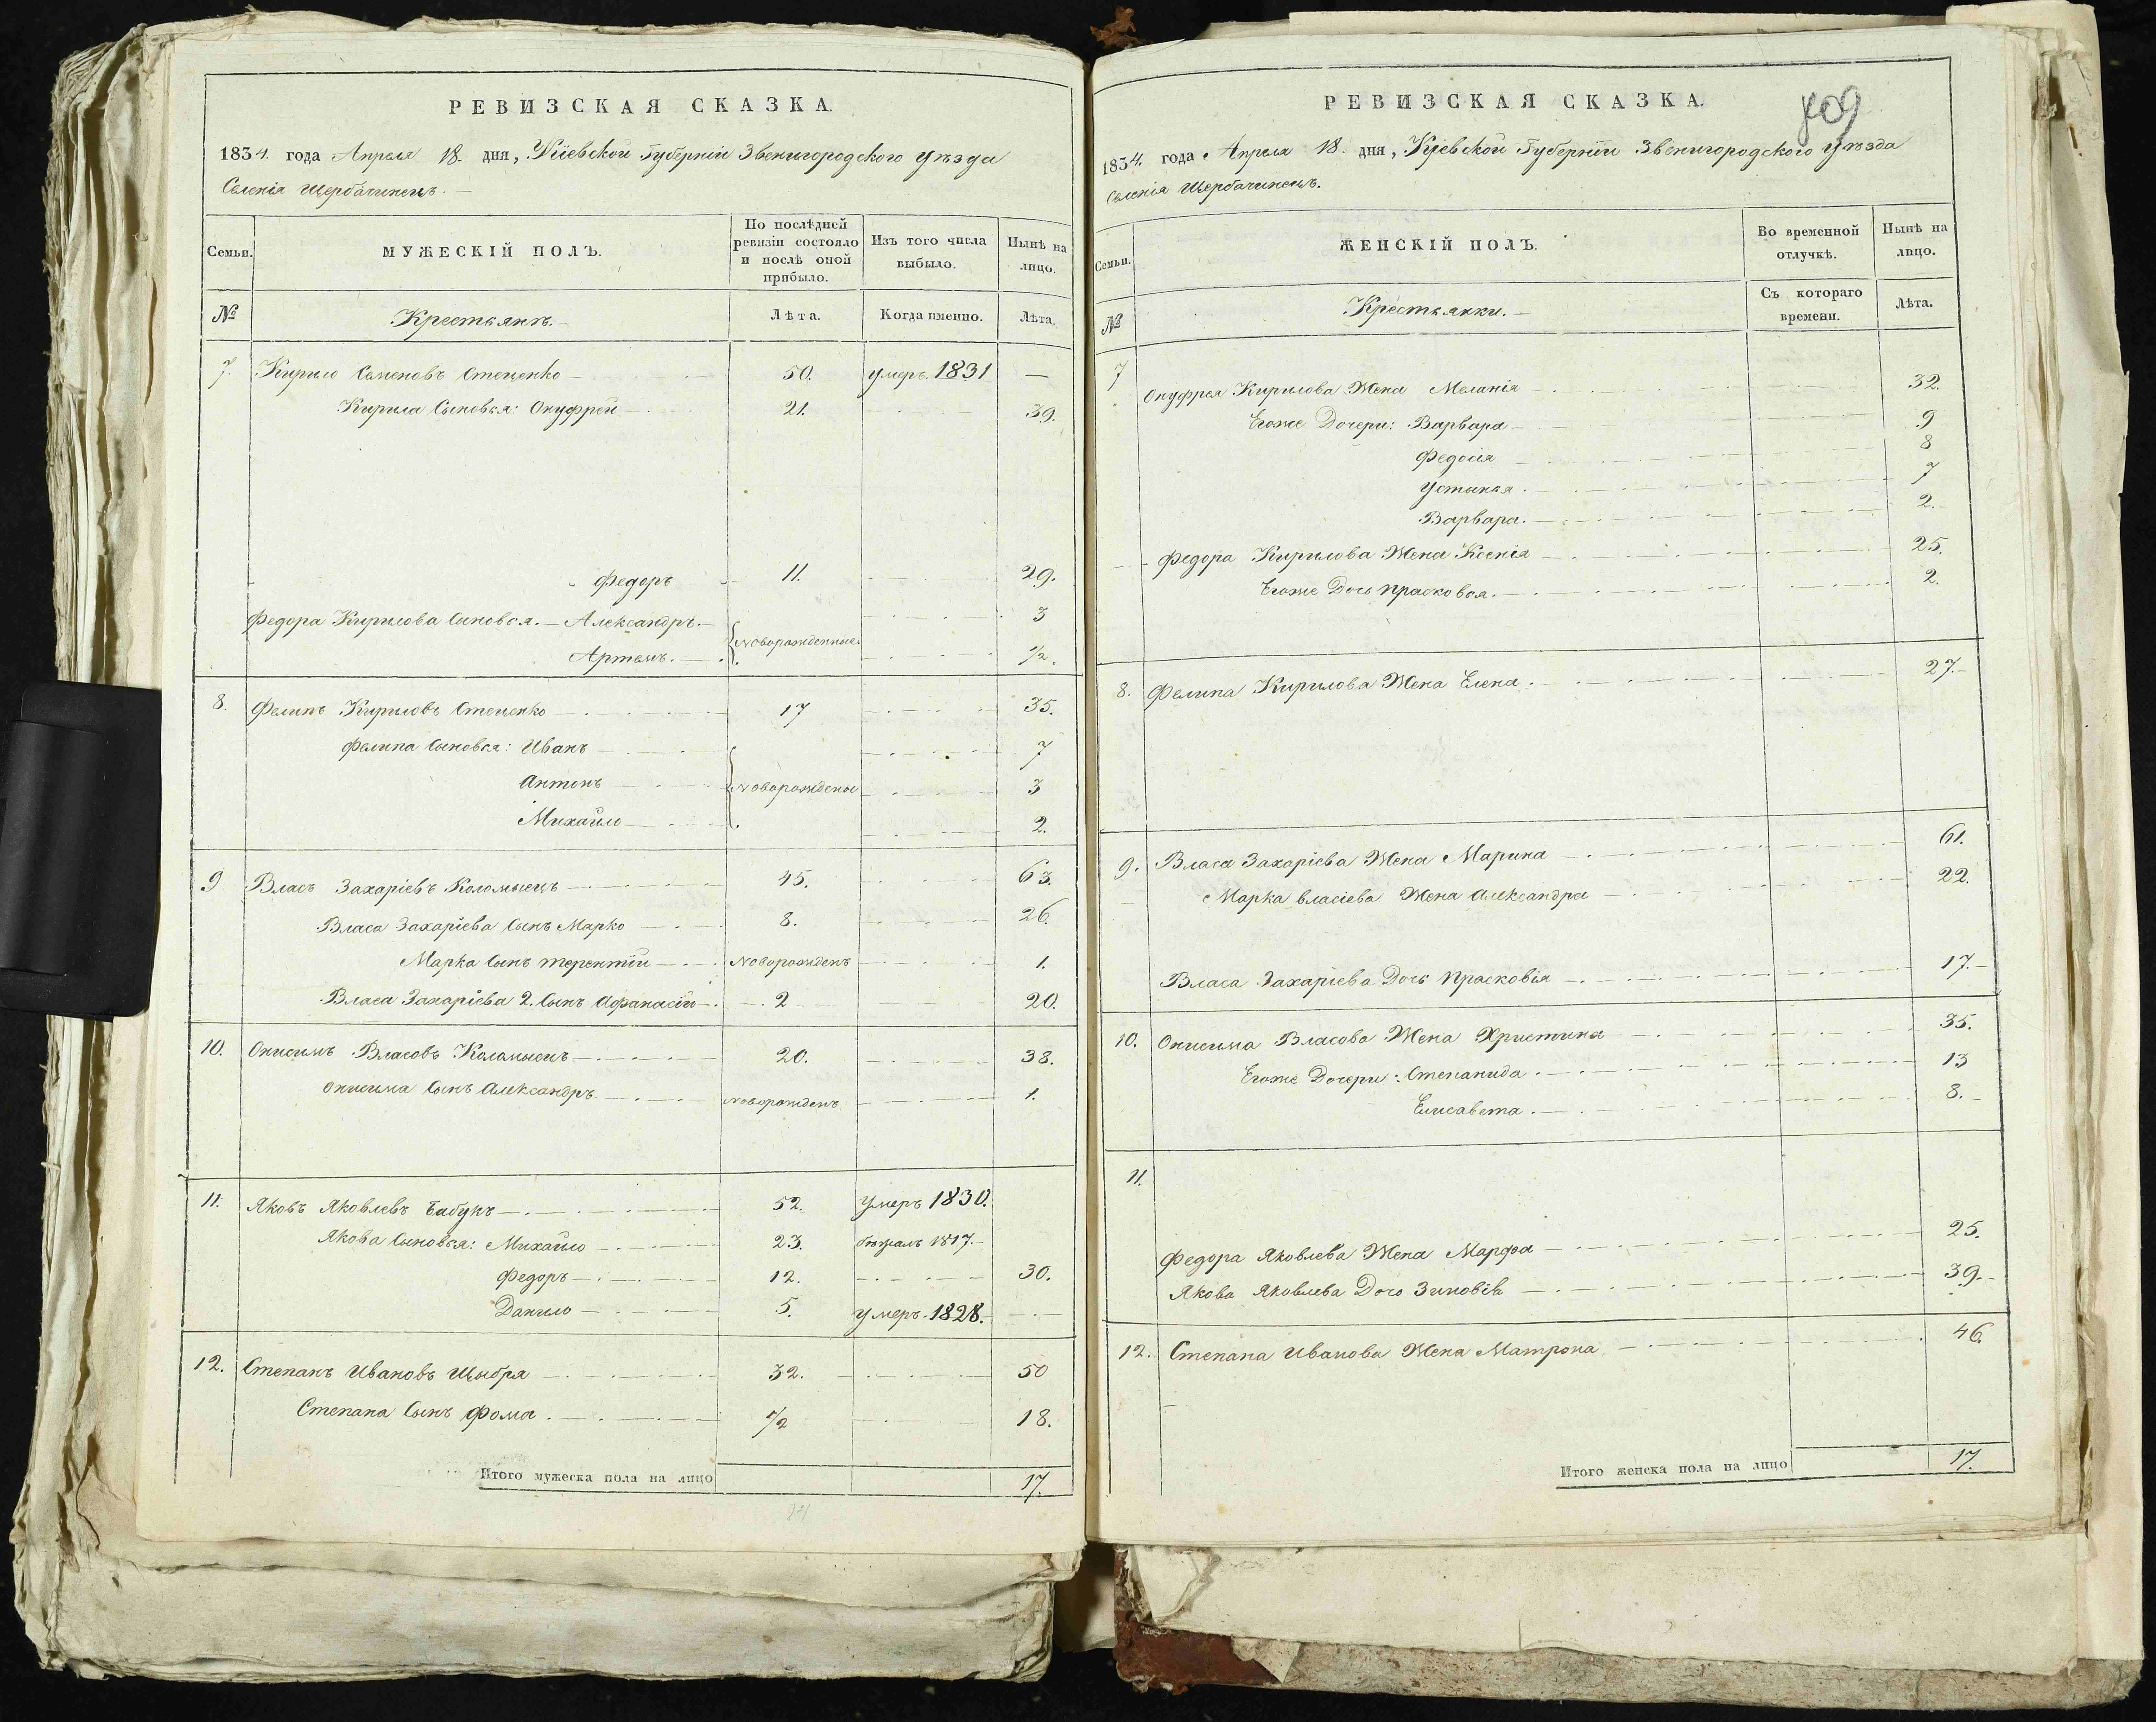 РЕВИЗСКАЯ СКАЗКА.
1834. года Апреля 18. дня, Кіевской Губерніи Звенигородского уѣзда
Селенія Щербачинецъ. —
Семьи. МУЖЕСКІЙ ПОЛЪ. По послѣдней ревизіи состояло и послѣ оной прибыло. Изъ того числа выбыло. Нынѣ на лицо.
№ Крестьянъ. — Лѣта. Когда именно. Лѣта.
7. Кирило Семеновъ Стеценко 50. умеръ. 1831 —
Кирила Сыновья: Онуфрей 21. 39.
Федоръ 11. 29.
Федора Кирилова Сыновья. — Александръ. 3
Новорожденные
Артемъ. 1/2.
8. Фелипъ Кириловъ Стеценко 17 35.
Фелипа Сыновья: Иванъ 7
Антонъ Новорожденые 3
Михайло 2.
9 Власъ Захаріевъ Коломыецъ 45. 63.
Власа Захаріева Сынъ Марко 8. 26.
Марка Сынъ Терентій Новорожденъ 1.
Власа Захаріева 2. Сынъ Афанасій 2 20.
10. Онисимъ Власовъ Коломыецъ 20. 38.
Онисима Сынъ Александръ. Новорожденъ 1.
11. Яковъ Яковлевъ Бабукъ 52. Умеръ 1830.
Якова Сыновья: Михайло 23. бѣжалъ 1817.
Федоръ 12. 30.
Данило 5. умеръ 1828.
12. Степанъ Ивановъ Щыбря 32. 50
Степана Сынъ Фома. 1/2 18.
Итого мужеска пола на лицо 17.
РЕВИЗСКАЯ СКАЗКА.
809
1834. года Апреля 18. дня, Кіевской Губерніи Звенигородского уѣзда
Селенія Щербачинецъ.
Семьи. ЖЕНСКІЙ ПОЛЪ. Во временной отлучкѣ. Нынѣ на лицо.
№ Крестьянки. — Съ котораго времени. Лѣта.
7 Онуфрея Кирилова Жена Меланія 32.
Егоже Дочери: Варвара 9
Федосія 8
Устинья. 7
Варвара. 2.
Федора Кирилова Жена Ксенія 25.
Егоже Дочь Прасковья. 2.
8. Фелипа Кирилова Жена Елена. 27.
9. Власа Захаріева Жена Марина 61.
Марка Власіева Жена Александра 22.
Власа Захаріева Дочь Прасковія 17.
10. Онисима Власова Жена Христина 35.
Егоже Дочери: Степанида. 13
Елисавета. 8.
11.
Федора Яковлева Жена Марфа 25.
Якова Яковлева Дочь Зиновія 39.
12. Степана Иванова Жена Матрона 46.
Итого женска пола на лицо 17.